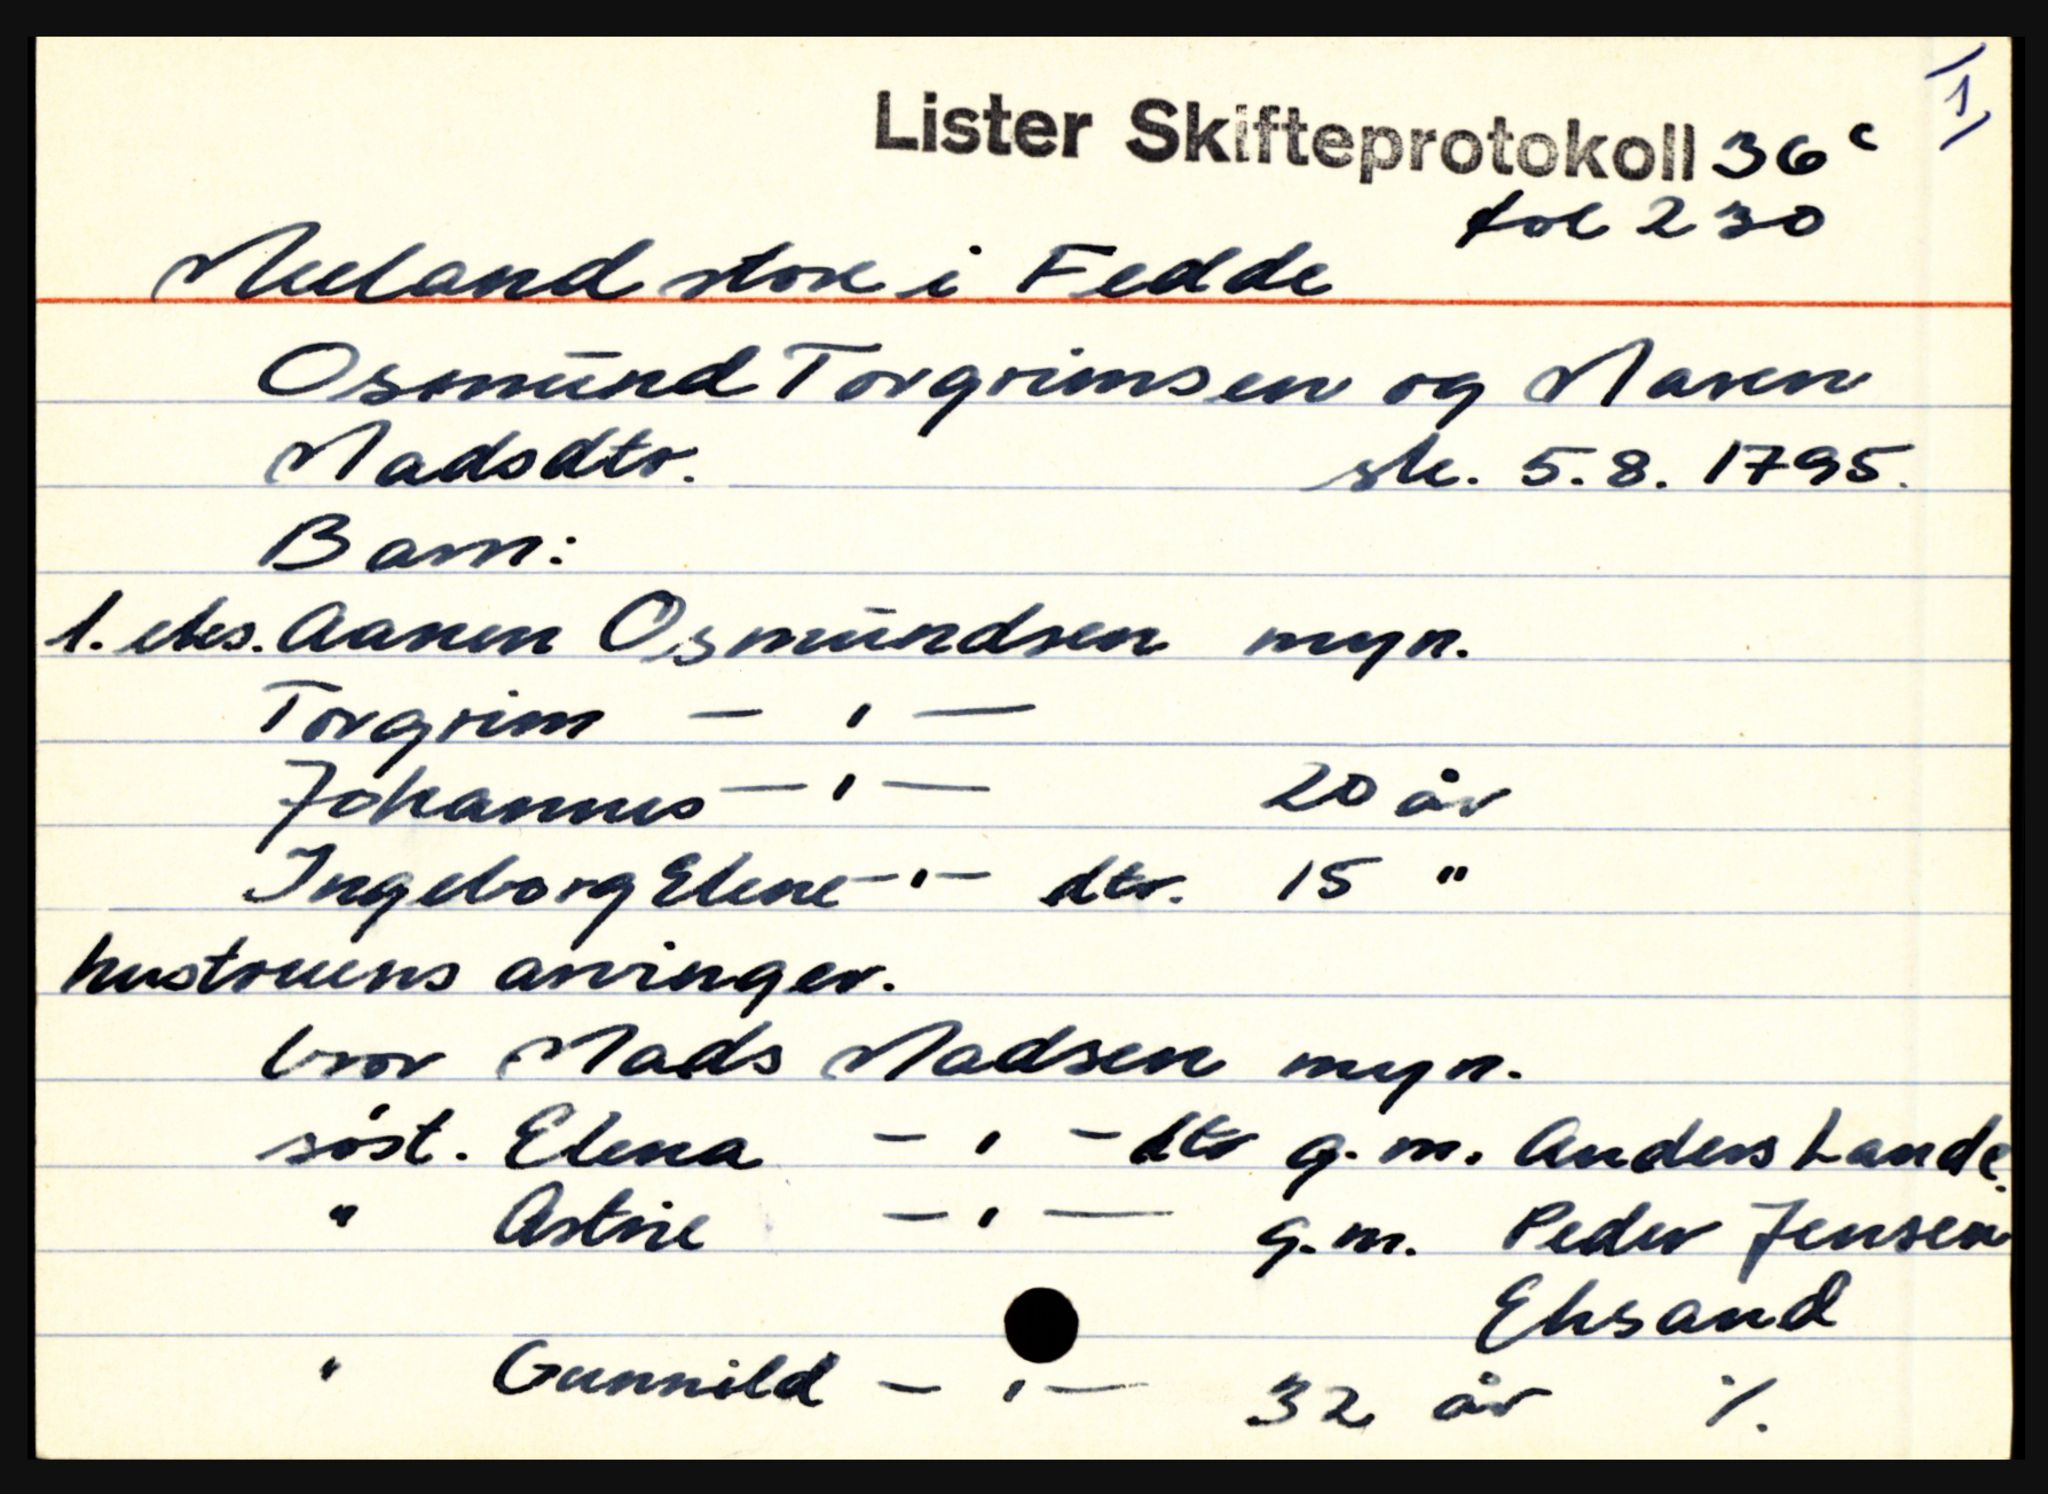 1)
Lister Skifteprotokoll 36 c
fol 230
Meland store i Fedde
Osmund Torgrimsen og Maren
Madsdtr. sk. 5.8. 1795.
Barn:
1. ekts. Aanen Osmundsen myn.
Torgrim — " —
Johannes — " — 20 år
Ingeborg Elene — " — dtr. 15 "
hustruens arvinger.
bror Mads Madsen myn.
søst. Elena — " — dtr g.m. Anders Lande.
" Astrie — " — g.m. Peder Jensen
Eksand
" Gunnild — " — 32 år ·/.